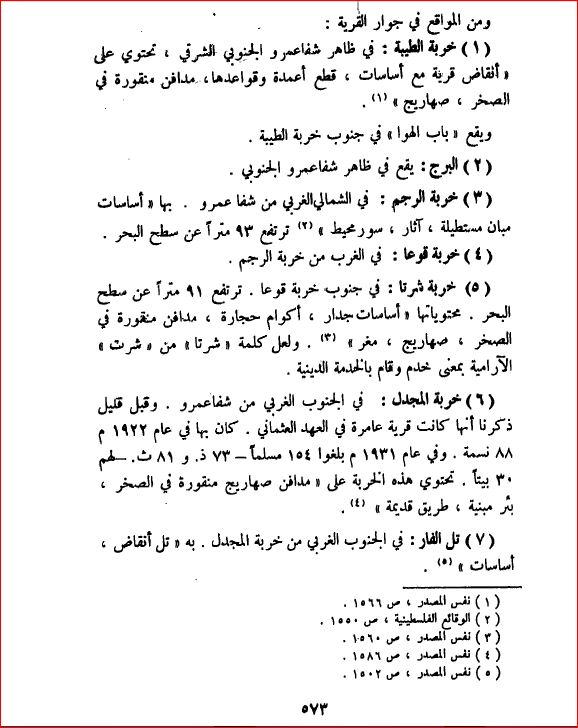 ومن المواقع في جوار القرية :
(١) خربة الطيبة : في ظاهر شفاعمرو الجنوبي الشرقي ، تحتوي على
« أنقاض قرية مع أساسات ، قطع أعمدة وقواعدها، مدافن منقورة في
الصخر ، صهاريج » (١) .
ويقع « باب الهوا » في جنوب خربة الطيبة .
(٢) البرج : يقع في ظاهر شفاعمرو الجنوبي .
(٣) خربة الرجم : في الشمالي الغربي من شفا عمرو . بها « أساسات
مبان مستطيلة ، آثار ، سور محيط » (٢) ترتفع ٩٣ متراً عن سطح البحر .
(٤) خربة قوعا : في الغرب من خربة الرجم .
(٥) خربة شرتا : في جنوب خربة قوعا . ترتفع ٩١ متراً عن سطح
البحر . محتوياتها « أساسات جدار ، أكوام حجارة ، مدافن منقورة في
الصخر ، صهاريج ، مغر » (٣) . ولعل كلمة « شرتا » من « شرت »
الآرامية بمعنى خدم وقام بالخدمة الدينية .
(٦) خربة المجدل : في الجنوب الغربي من شفاعمرو . وقبل قليل
ذكرنا أنها كانت قرية عامرة في العهد العثماني . كان بها في عام ١٩٢٢ م
٨٨ نسمة . وفي عام ١٩٣١ م بلغوا ١٥٤ مسلماً – ٧٣ ذ. و ٨١ ث. – لهم
٣٠ بيتاً . تحتوي هذه الخربة على « مدافن صهاريج منقورة في الصخر ،
بئر مبنية ، طريق قديمة » (٤) .
(٧) تل الفار : في الجنوب الغربي من خربة المجدل . به « تل أنقاض ،
أساسات » (٥) .
(١) نفس المصدر ، ص ١٥٦٦ .
(٢) الوقائع الفلسطينية ، ص ١٥٥٠ .
(٣) نفس المصدر ، ص ١٥٦٠ .
(٤) نفس المصدر ، ص ١٥٨٦ .
(٥) نفس المصدر ، ص ١٥٠٢ .
٥٧٣